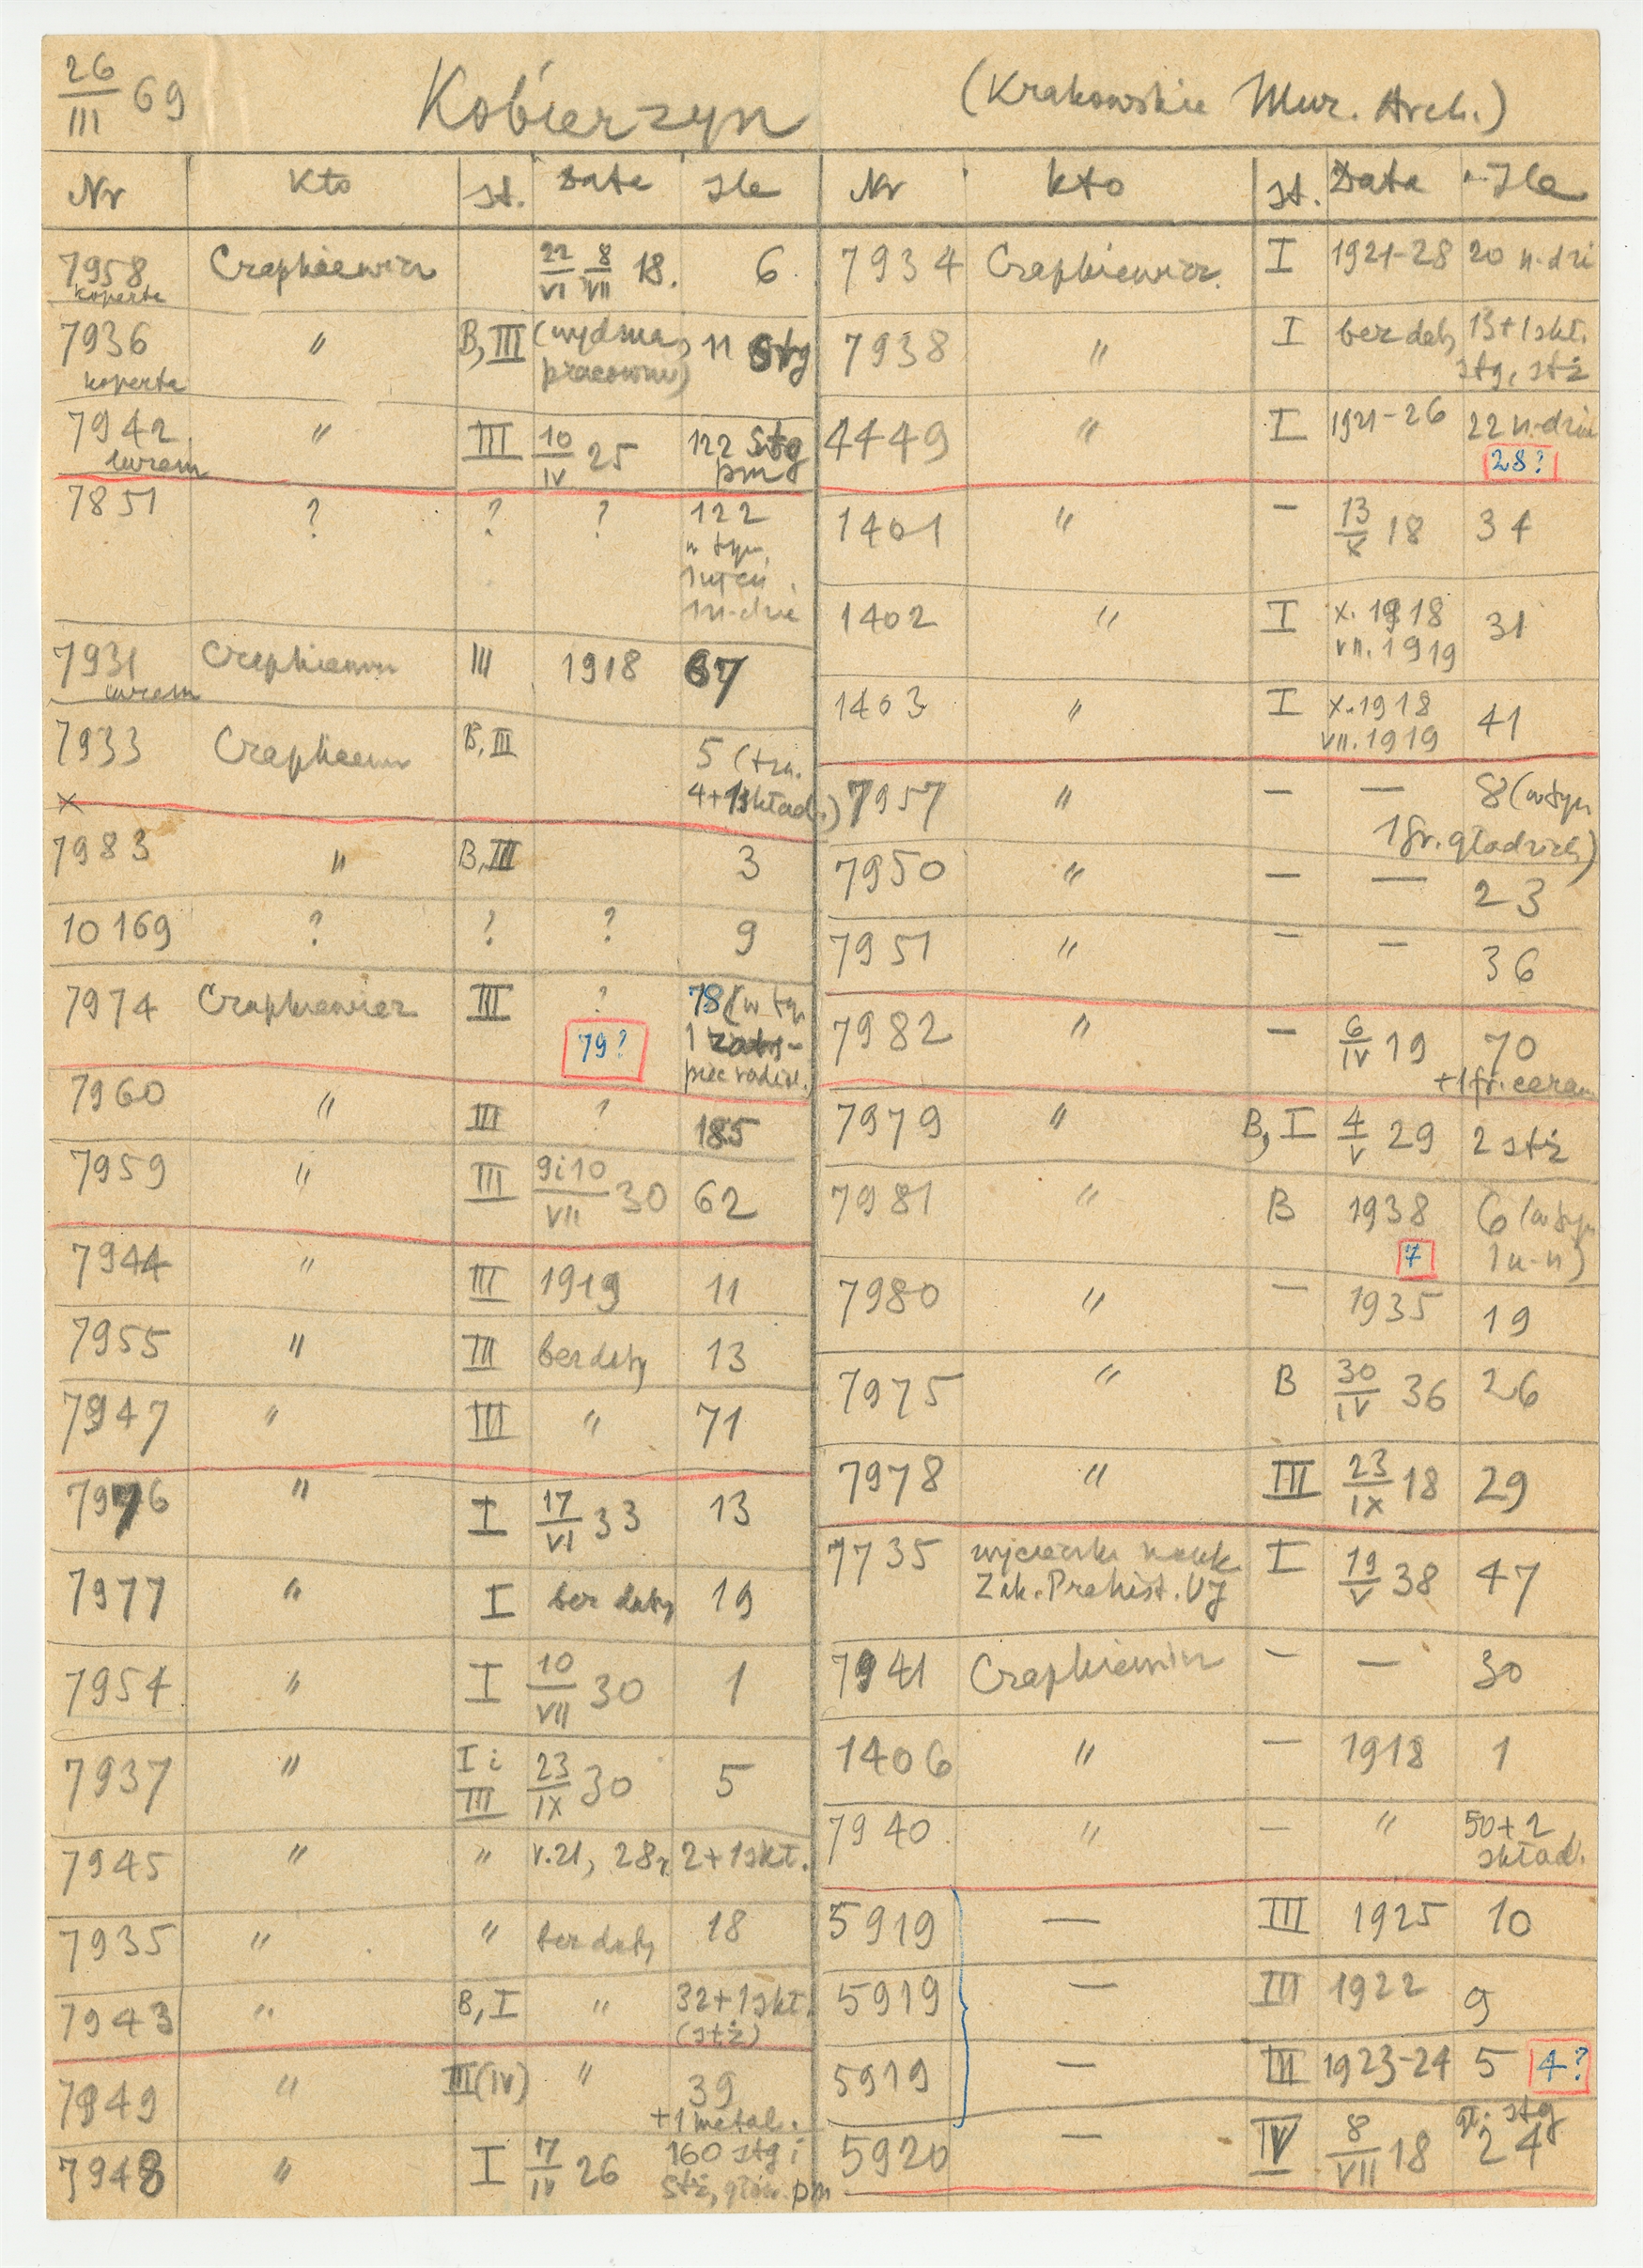 26/III 69 Kobierzyn (Krakowskie Muz. Arch.)
Nr Kto st. Data Ile
7958 Czapkiewicz 22/VI 8/VII 18. 6
koperta
7936 " B, III (wydma, 11 stg
koperta pracowni)
7942 " III 10/IV 25 122 stg
razem pm
7851 ? ? ? 122
w tym
1 n-dzie
7931 Czapkiewicz III 1918 67
razem
7933 Czapkiewicz B, III 5 (tzn.
x 4+1 skład.)
7983 " B, III 3
10169 ? ? ? 9
7974 Czapkiewicz III ? 78 (w tym
79? 1
7960 " III ? 185
7959 " III 9 i 10/VII 30 62
7944 " III 1919 11
7955 " III bez daty 13
7947 " III " 71
7976 " I 17/VI 33 13
7977 " I bez daty 19
7954 " I 10/VII 30 1
7937 " I i III 23/IX 30 5
7945 " " r. 21, 28 r. 2+1 skł.
7935 " " bez daty 18
7943 " B, I " 32+1 skł.
(stż)
7949 " III (IV) " 39
+1 metal.
7948 " I 7/IV 26 160 stg i
stż, głów. pm
Nr kto st. Data Ile
7934 Czapkiewicz I 1921-28 20 n-dzi
7938 " I bez daty 13+1 skł.
stg, stż
4449 " I 1921-26 22 n-dzia
28?
1401 " — 13/X 18 34
1402 " I X. 1918 31
VII. 1919
1403 " I X. 1918 41
VII. 1919
7957 " — — 8 (w tym
1 fr. gładzich)
7950 " — — 23
7951 " — — 36
7982 " — 6/IV 19 70
+1 fr. ceram.
7979 " B, I 4/V 29 2 stż
7981 " B 1938 6 (w tym
7 1 n-n)
7980 " — 1935 19
7975 " B 30/IV 36 26
7978 " III 23/IX 18 29
7735 wycieczka nauk. I 19/V 38 47
Zak. Prehist. UJ
7941 Czapkiewicz — — 30
1406 " — 1918 1
7940 " — " 50+2
skład.
5919 — III 1925 10
5919 — III 1922 9
5919 — III 1923-24 5 4?
5920 — IV 8/VII 18 gł. stg
24